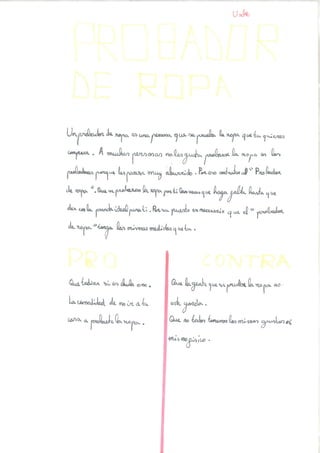 Uxue
PROBADOR
DE ROPA
Un probador de ropa es una persona, que se prueba la ropa que tu quieres
comprar. A muchas personas no les gusta probarse la ropa en los
probadores porque les parece muy aburrido. Por eso está el "Probador
de ropa". Que se probaran la ropa por ti las veces que haga falta hasta que
den con la prenda ideal para ti. Pero su puesto es necesario que el "probador
de ropa" tenga las mismas medidas que tu.
PRO
CONTRA
Que tedirá si es chulo o no.
La comodidad de no ir a tu
casa a probarte la ropa.
Que la gente que se prueba la ropa no
esté gorda.
Que no todos tenemos los mismos gustos ni
mismo físico.